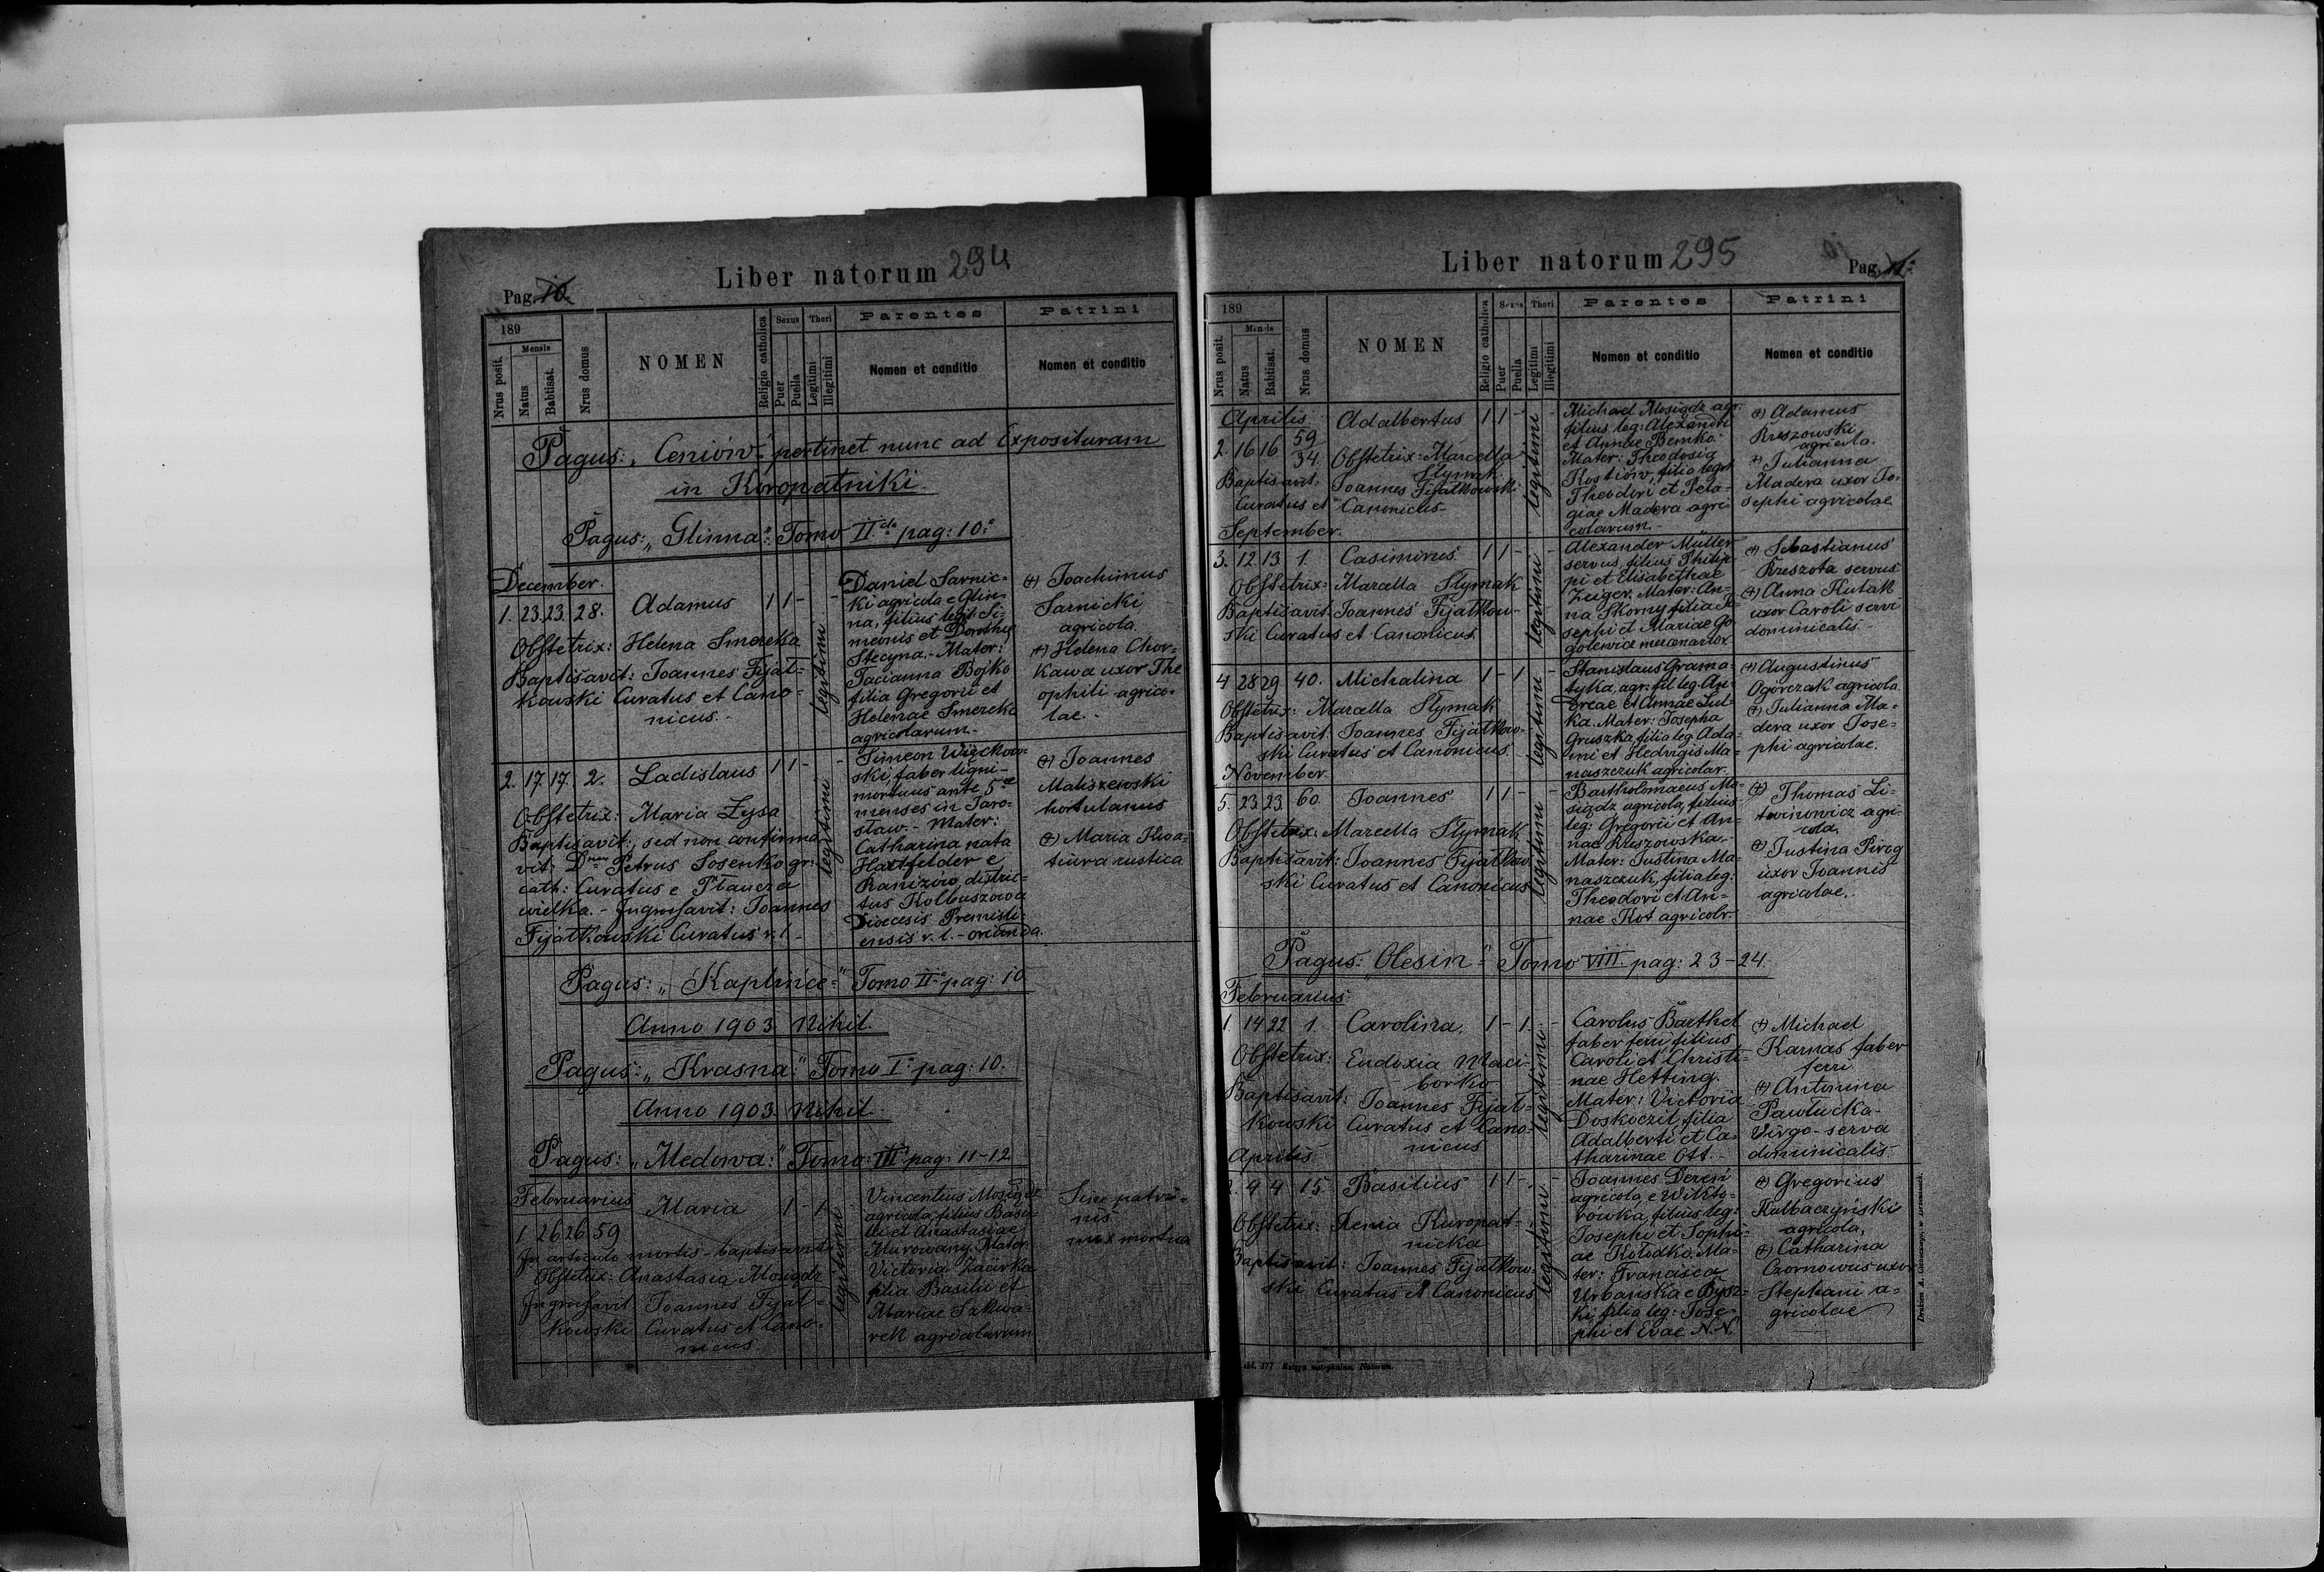 Liber natorum 294
Pag. 10.
189
Nrus posit.
Mensis
Natus
Babtisat.
Nrus domus
NOMEN
Religio catholica
Sexus
Puer
Puella
Thori
Legitimi
Illegitimi
Parentes
Nomen et conditio
Patrini
Nomen et conditio
Pagus: „Ceniów" pertinet nunc ad Exposituram
in Koropatniki.
Pagus: „Glinna": Tomo II pag: 10.
December.
1. 23. 23. 28. Adamus 1 1 - -
Obstetrix: Helena Smereka
Baptisavit: Joannes Fijał-
kowski Curatus et Cano-
nicus.
legitimi
Daniel Sarnic-
ki agricola e Glin-
na, filius legit: Si-
meonis et Dorotheę
Stecyna. - Mater:
Tacianna Bojko
filia Gregorii et
Helenae Smereka
agricolarum.
(+) Joachimus
Sarnicki
agricola.
(+) Helena Chor-
kawa uxor The
ophili agrico-
lae.
2. 17. 17. 2. Ladislaus 1 1 - -
Obstetrix: Maria Łysa
Baptisavit, sed non confirma-
vit: Petrus Sosenko gr:
cath: Curatus e Płaucza
wielka. - Ingrossavit: Joannes
Fijałkowski Curatus r. l.
legitimi
Simeon Więckow-
ski, faber ligni -
mortuus ante 5
menses in Jaro-
sław. - Mater:
Catharina nata
Hartfelder e
Ranizów, distric-
tus Kolbuszowa
Dioecesis Premisli-
ensis r. l. - oriunda.
(+) Joannes
Maliszewski
hortulanus
(+) Maria
rustica
Pagus: „Kaplince" Tomo II pag: 10
Anno 1903. Nihil.
Pagus: „Krasna:" Tomo I pag: 10.
Anno 1903. Nihil.
Pagus: „Medowa:" Tomo: III pag: 11-12
Februarius
1 26 26 59 Maria 1 - 1 -
In articulo mortis - baptisavit
Obstetrix: Anastasia Mosiądz
Ingrossavit Joannes Fijał-
kowski Curatus et Cano-
nicus.
legitimi
Vincentius Mosiądz
agricola, filius Basi-
lii et Anastasiae
Murowany. Mater:
Victoria Zacirka
filia Basilii et
Mariae Szkwa-
rek agricolarum
Sine patri-
nis
mox mortua
Liber natorum 295
Pag. 11.
189
Nrus posit.
Mensis
Natus
Babtisat.
Nrus domus
NOMEN
Religio catholica
Sexus
Puer
Puella
Thori
Legitimi
Illegitimi
Parentes
Nomen et conditio
Patrini
Nomen et conditio
Aprilis
2. 16 16 59 34 Adalbertus 1 1 - -
Obstetrix: Marcella
Słymak
Baptisavit: Joannes Fijałkowski
Curatus et Canonicus
legitimi
Michael Mosiądz agr:
filius leg: Alexandri
et Annae Bemko.
Mater: Theodosia
Kostiów, filia leg:
Theodori et Pela-
giae Madera agri
colarum.
(+) Adamus
Kreszowski
agricola.
+ Julianna
Madera uxor Jo-
sephi agricolae
September.
3. 12. 13 1. Casimirus 1 1 - -
Obstetrix: Marcella Słymak
Baptisavit: Joannes Fijałkow-
ski Curatus et Canonicus.
legitimi
Alexander Müller
servus, filius Philip-
pi et Elisabethae
Zuiger. Mater: An-
na Skorny filia Jo-
sephi et Mariae Go
golewicz
(+) Sebastianus
Kreszota servus
(+) Anna Hutak
uxor Caroli servi
dominicalis.
4 28 29 40. Michalina 1 - 1 -
Obstetrix: Marcella Słymak
Baptisavit: Joannes Fijałkow-
ski Curatus et Canonicus.
legitimi
Stanislaus Grama-
tyka, agr: fil. leg. An-
dreae et Annae Lul-
ka. Mater: Josepha
Gruszka, filia leg. Ada-
mi et Hedvigis Ma-
naszczuk agricolar.
(+) Augustinus
Ogórczak agricola.
(+) Julianna Ma-
dera uxor Jose-
phi agricolae.
November
5. 23 23 60. Joannes 1 1 - -
Obstetrix: Marcella Słymak
Baptisavit: Joannes Fijałkow-
ski Curatus et Canonicus
legitimi
Bartholomaeus Mo-
siądz agricola, filius
leg: Gregorii et An-
nae Kreszowska.
Mater: Justina Ma-
naszczuk, filia leg:
Theodori et An-
nae Kot agricolr.
(+) Thomas Li-
twinowicz agri-
cola.
(+) Justina Pirog
uxor Joannis
agricolae.
Pagus: „Olesin" Tomo VIII. pag: 23-24.
Februarius.
1. 14 22 1. Carolina. 1 - 1. -
Obstetrix: Eudoxia Maci-
borko
Baptisavit: Joannes Fijał-
kowski Curatus et Cano-
nicus
legitimi
Carolus Barthel
faber ferri filius
Caroli et Christi-
nae Hetting.
Mater: Victoria
Doskoczil filia
Adalberti et Ca-
tharinae Ott.
(+) Michael
Karnas faber
ferri.
(+) Antonina
Pawlucka
Virgo - serva
dominicalis.
Aprilis
2. 4 4 15 Basilius 1 1 - -
Obstetrix: Xenia Kuropat-
nicka
Baptisavit: Joannes Fijałkow-
ski Curatus et Canonicus
legitimi
Joannes Dereń
agricola, e Wikto-
rówka, filius leg:
Josephi et Sophi-
ae Kołodko. Ma-
ter: Francisca
Urbańska e Bysz-
ki, filia leg: Jose-
phi et Evae N. N.
(+) Gregorius
Kulbaczyński
agricola,
(+) Catharina
Czornowus uxor
Stephani a-
gricolae
Księga metrykalna. Natorum.